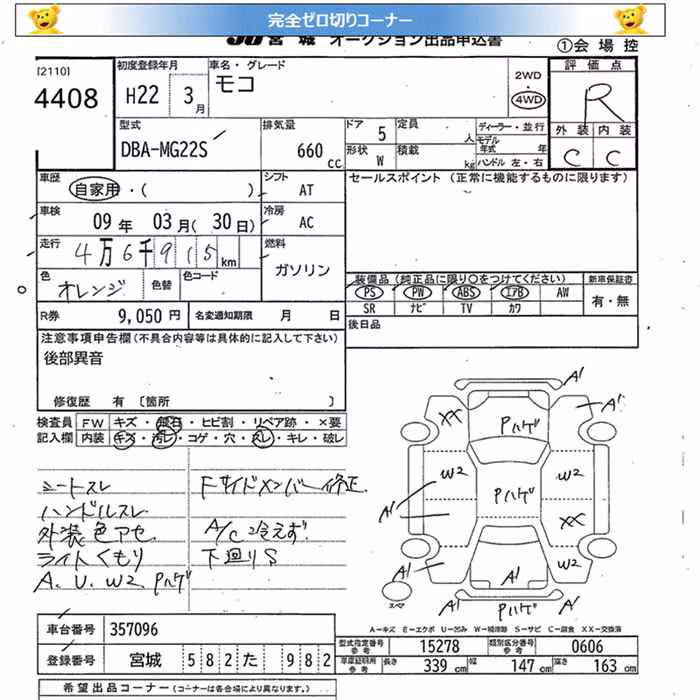 完全ゼロ切りコーナー
JU宮城 オークション出品申込書
①会場控
[2110]
4408
初度登録年月
H22 3月
車名・グレード
モコ
2WD
・
4WD
評価点
R
外装 内装
C C
型式
DBA-MG22S
排気量
660 cc
ドア 5
定員 人
形状 W
積載 kg
ディーラー・並行
モデル年式 年
ハンドル 左・右
車歴
自家用・( )
シフト AT
セールスポイント (正常に機能するものに限ります)
車検
09年 03月(30日)
冷房 AC
走行
4万6千915km
燃料
ガソリン
色
オレンジ
色替
色コード
装備品 (純正品に限り○をつけてください)
新車保証書
PS PW ABS エアB AW
有・無
SR ナビ TV カワ
R券 9,050円
名変通知期限 月 日
後日品
注意事項申告欄(不具合内容等は具体的に記入して下さい)
後部異音
修復歴 有 [箇所 ]
検査員記入欄
FW キズ・飛石・ヒビ割・リペア跡・×要
内装 キズ・汚レ・コゲ・穴・スレ・キレ・破レ
シートスレ
ハンドルスレ
外装色アセ
ライトくもり
A、U、W2、Pハゲ
Fサイドメンバー修正
A/C冷えず
下廻りS
A1
A1
XX
Pハゲ
W2
Pハゲ
W2
A1
XX
A1
A1
W2
スペア
A1
Pハゲ
A1
A-キズ E-エクボ U-凹み W-補修跡 S-サビ C-腐食 XX-交換済
車台番号 357096
型式指定番号 参考 15278
類別区分番号 参考 0606
登録番号 宮城 582 た 982
車庫証明用 参考 長さ 339cm 幅 147cm 高さ 163cm
希望出品コーナー(コーナーは各会場により異なります。)